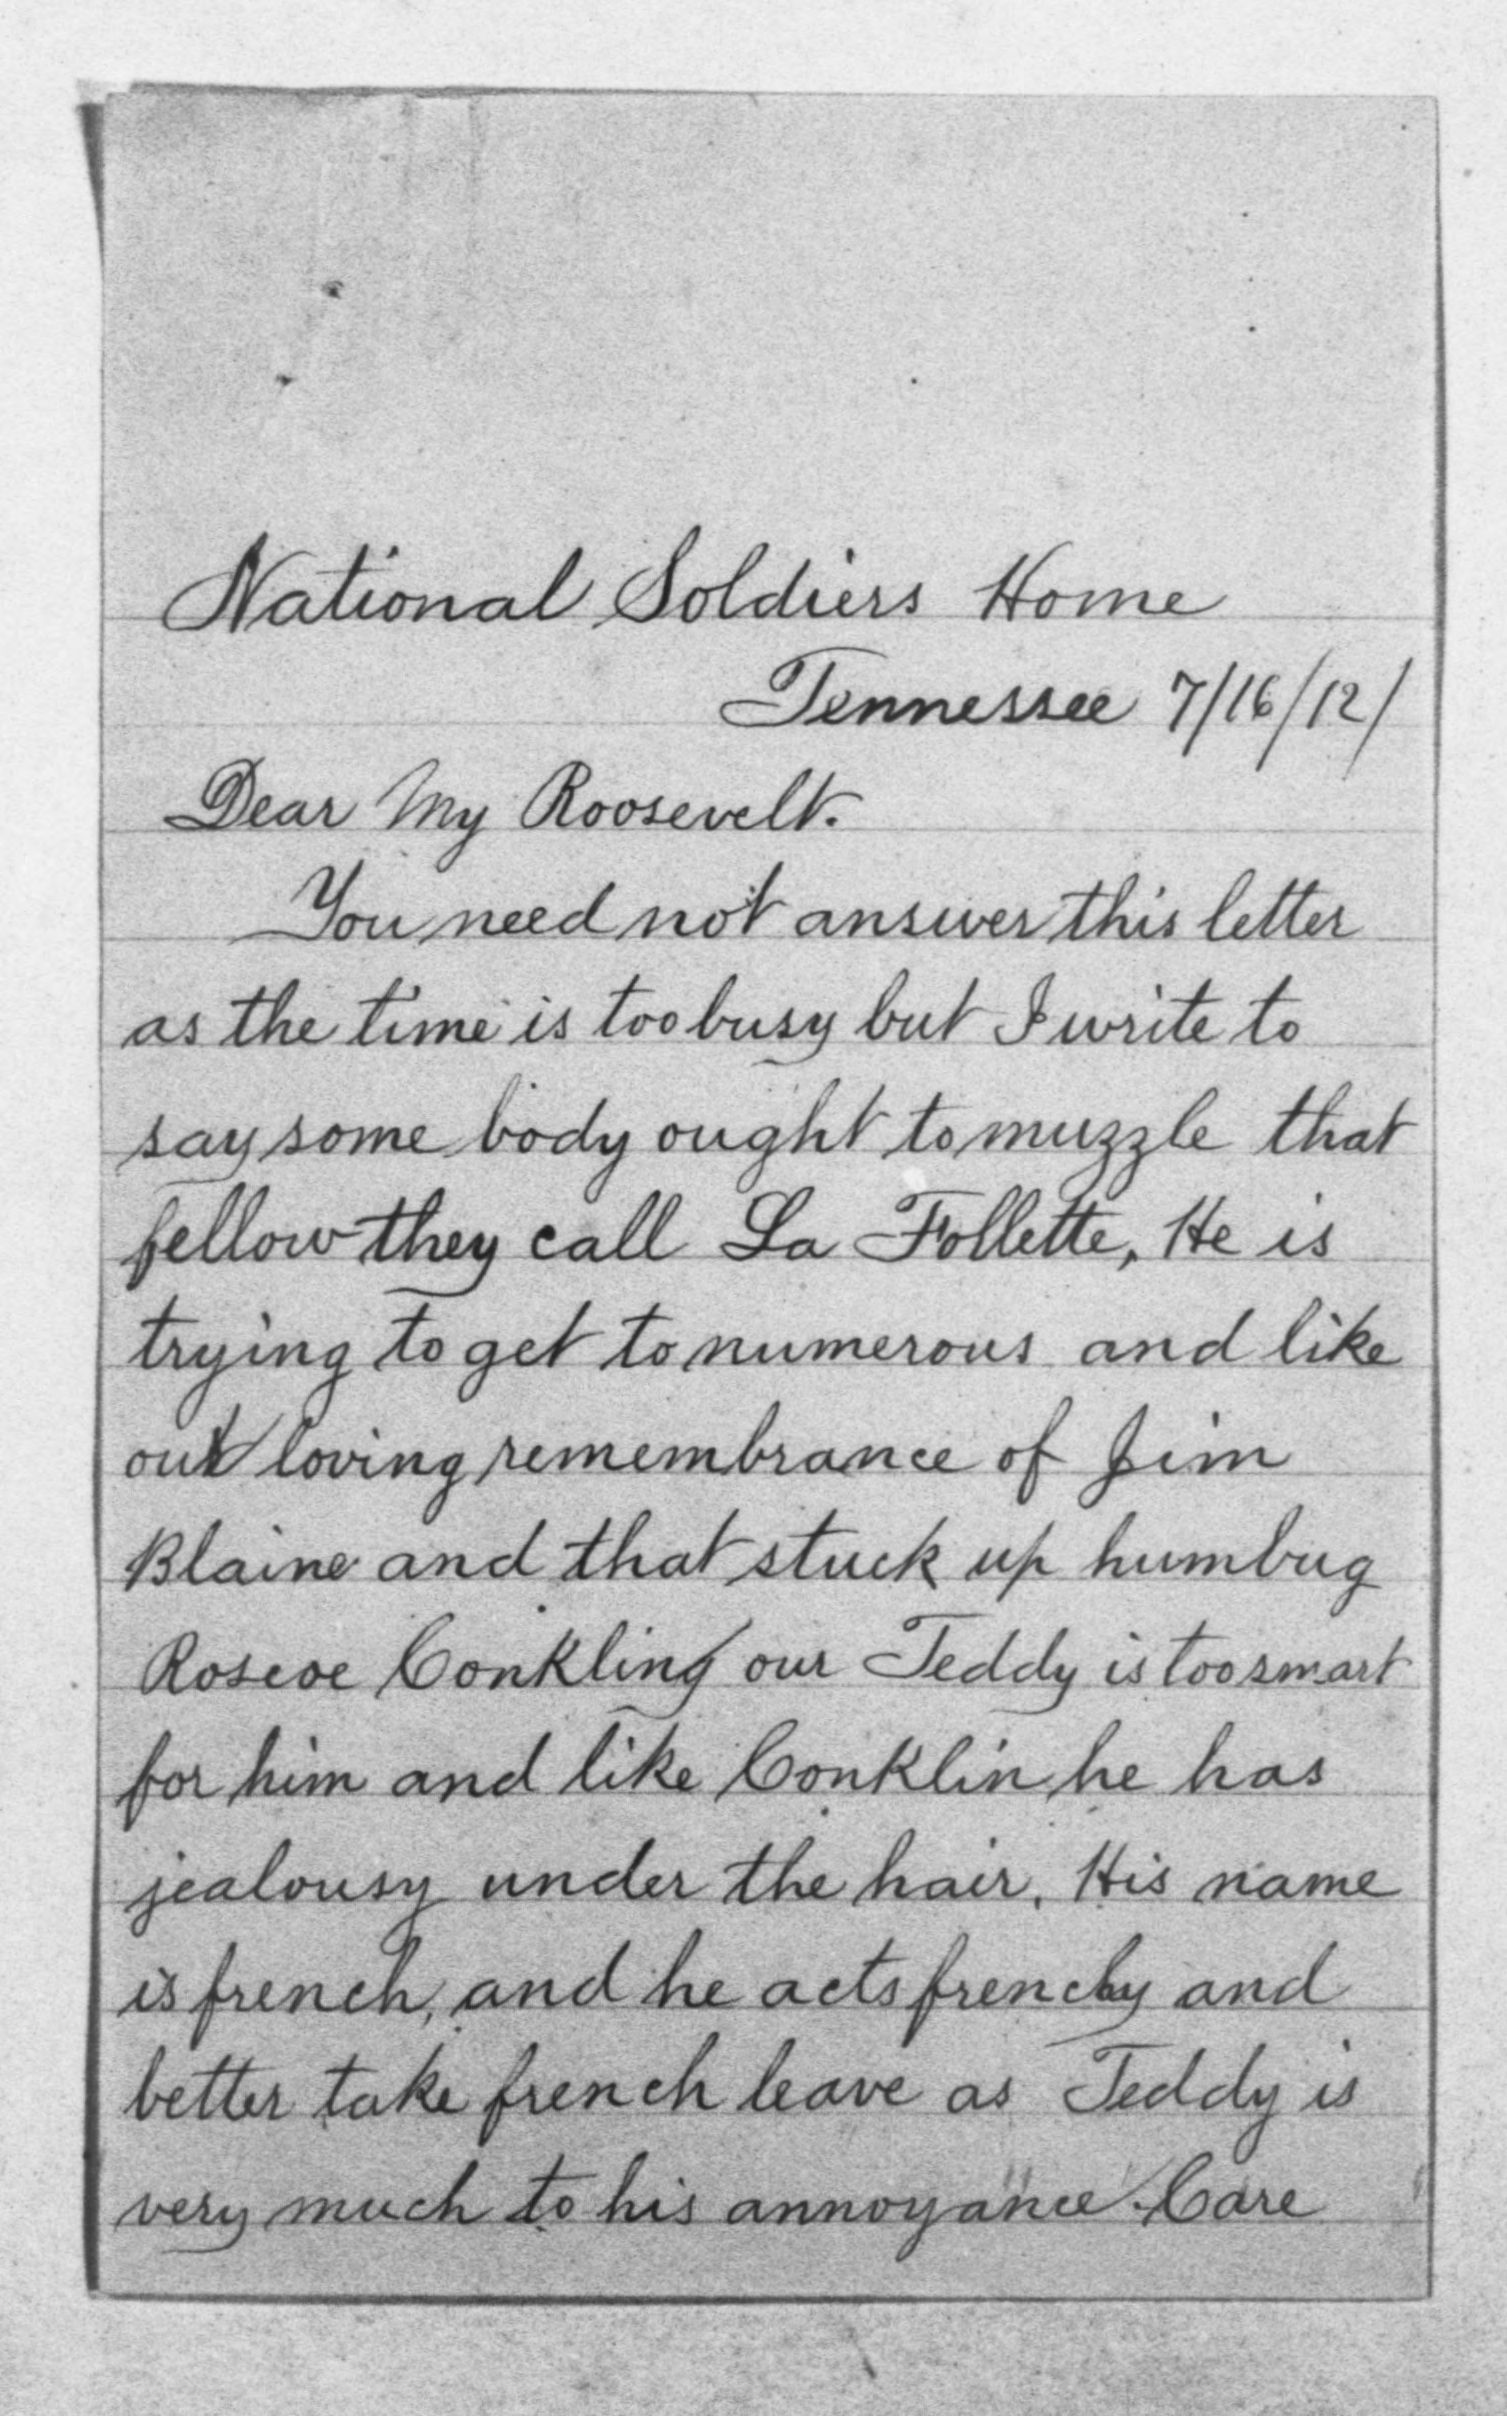 National Soldiers Home
Tennessee 7/16/12/
Dear My Roosevelt.
You need not answer this letter
as the time is too busy but I write to
say some body ought to muzzle that
fellow they call La Follette, He is
trying to get to numerous and like
our loving remembrance of Jim
Blaine and that stuck up humbug
Roscoe Conkling our Teddy is too smart
for him and like Conklin he has
jealousy under the hair. His name
is french, and he acts frenchy and
better take french leave as Teddy is
very much to his annoyance. Care